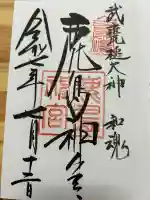 武甕槌大神 和魂
鹿島神宮
令和七年一月十三日